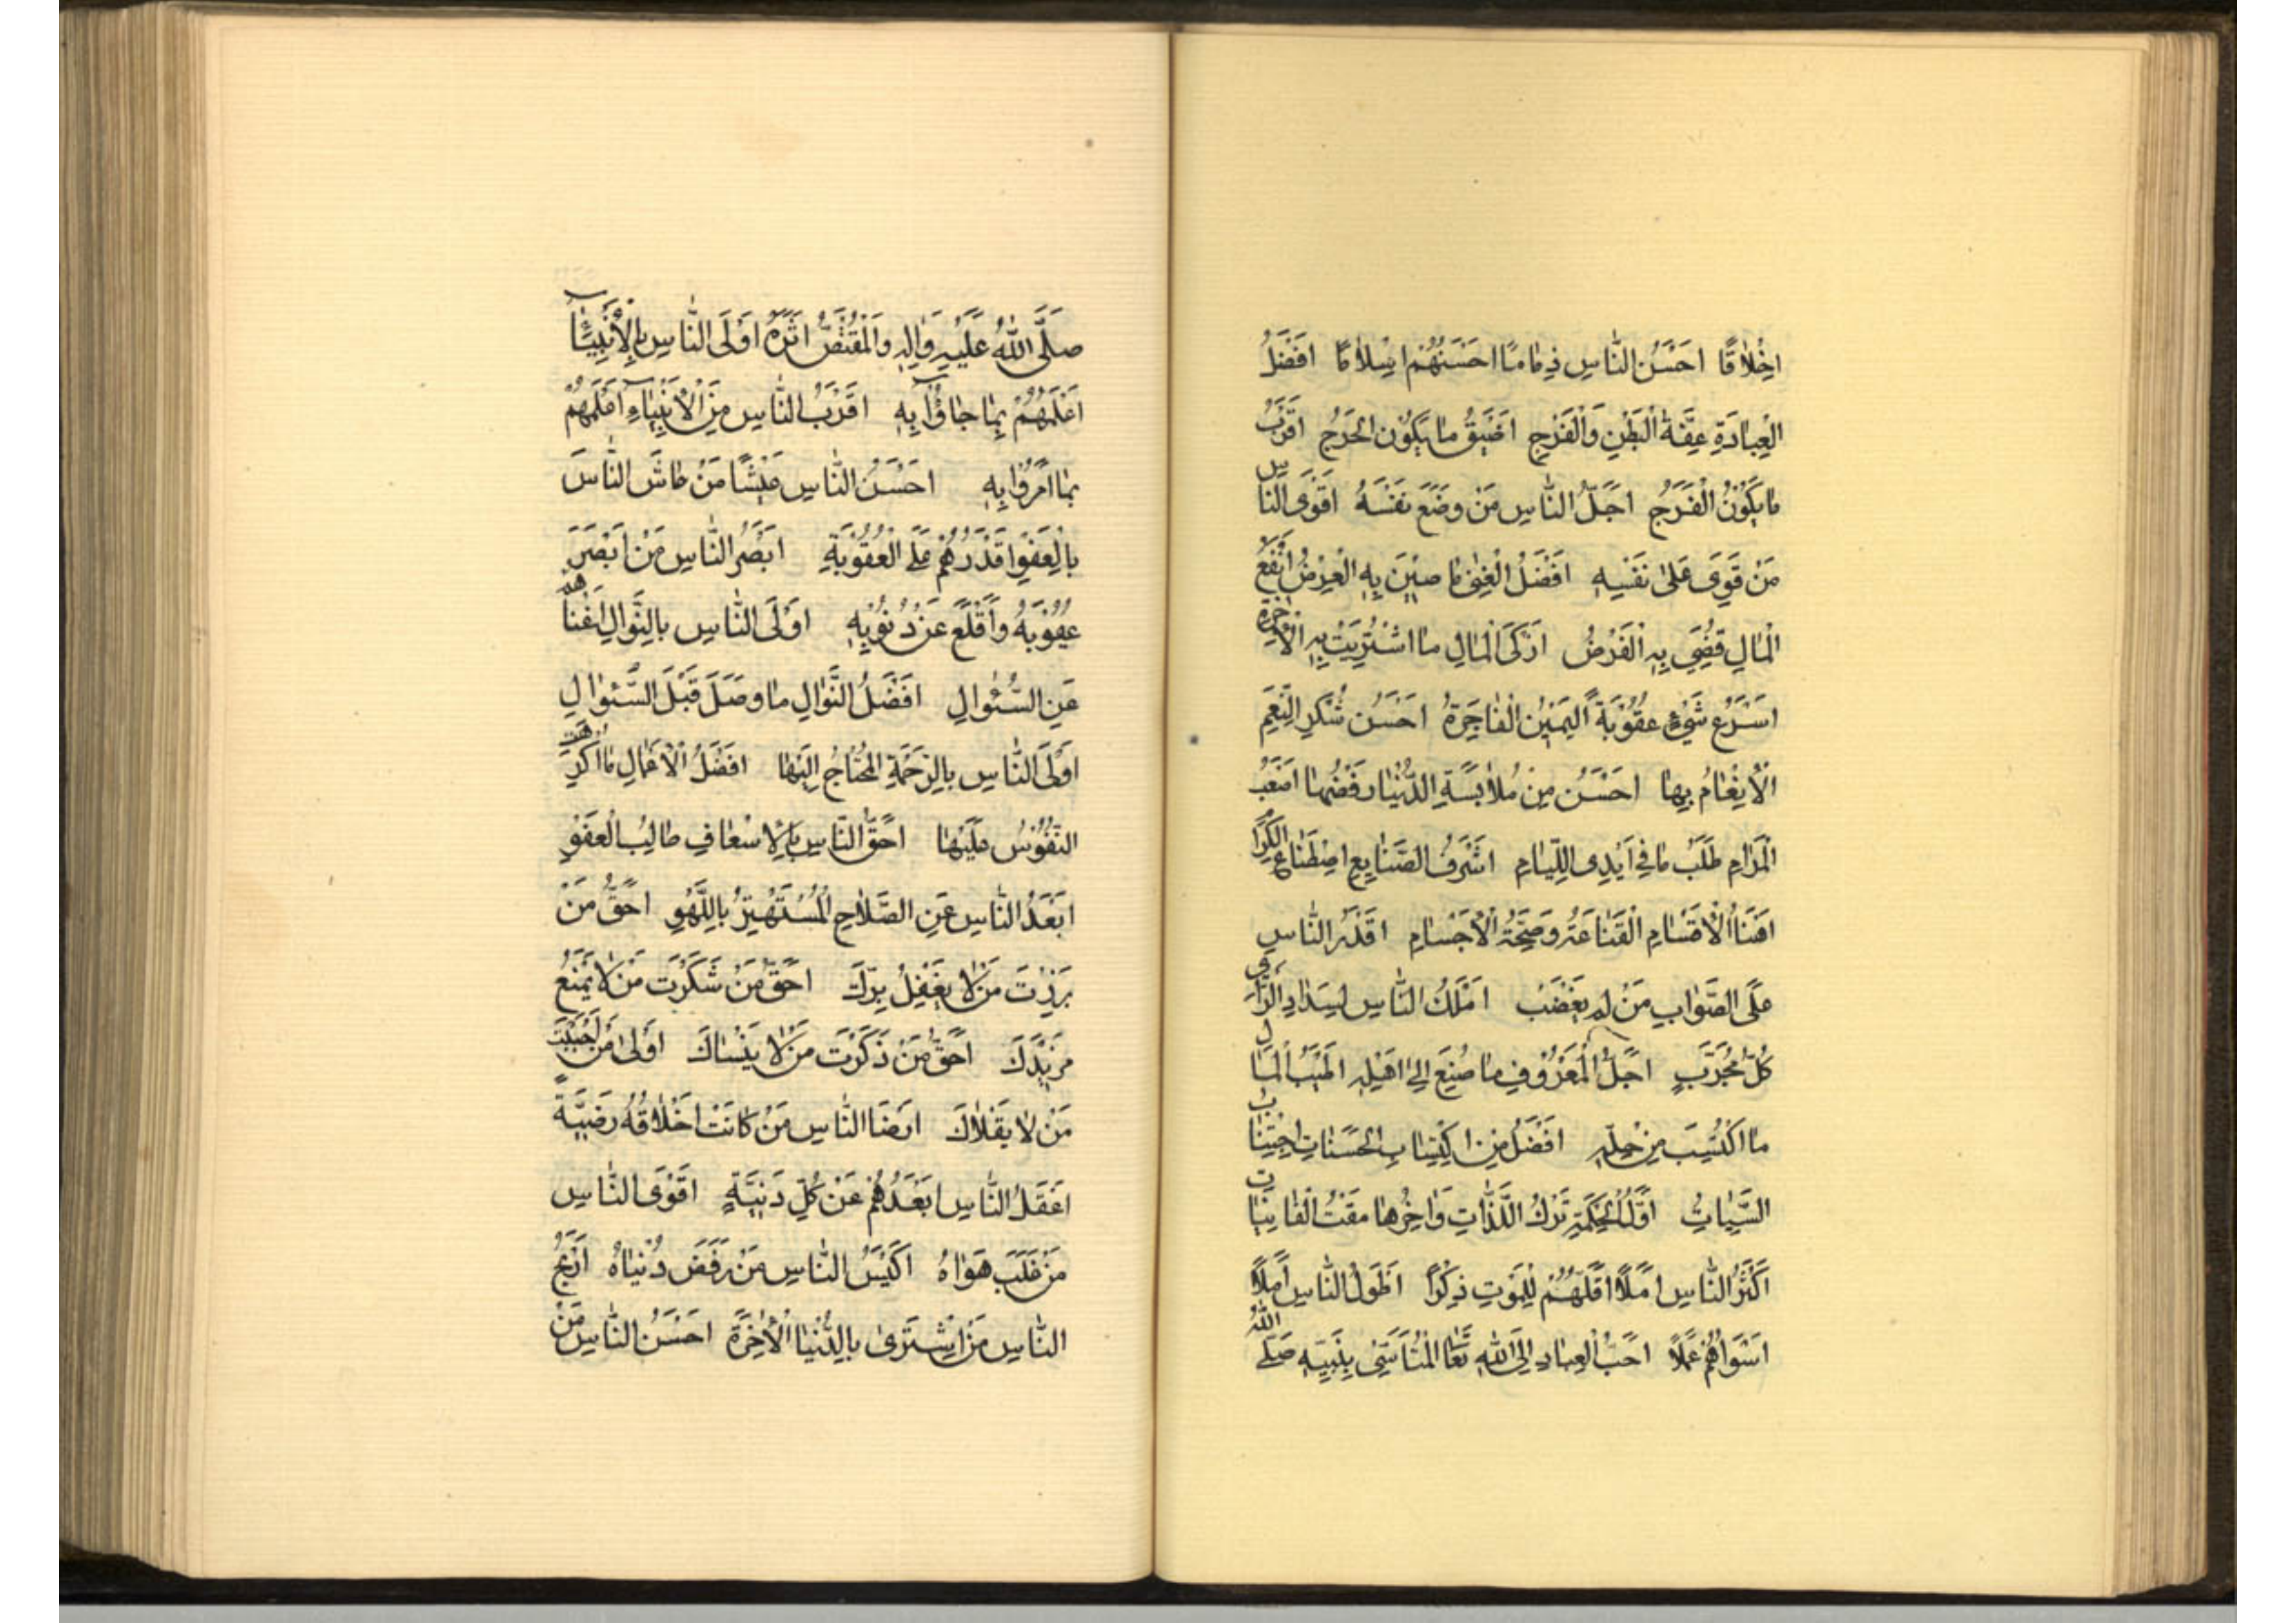 اَخْلاقًا اَحْسَنُ النّاسِ ذِمامًا اَحْسَنُهُمْ اِسْلامًا اَفْضَلُ
الْعِبادَةِ عِفَّةُ الْبَطْنِ وَالْفَرْجِ اَضْيَقُ ما يَكُونُ الحَرَجُ اَقْرَبُ
ما يَكُونُ الْفَرَجُ اَجَلُّ النّاسِ مَنْ وَضَعَ نَفْسَهُ اَقْوَى النّاسِ
مَنْ قَوِىَ عَلىٰ نَفْسِهِ اَفْضَلُ الْغِنىٰ ما صِيْنَ بِهِ الْعِرْضُ اَنْفَعُ
الْمالِ قُضِىَ بِهِ الْفَرْضُ اَزْكَى الْمالِ ما اشْتُرِيَتْ بِهِ الْاٰخِرَة
اَسْرَعُ شَىْءٍ عُقُوْبَةً الْيَمِيْنُ الْفاجِرَةُ اَحْسَنُ شُكْرِ النِّعَمِ
الْاِنْعامُ بِها اَحْسَنُ مِنْ مُلابَسَةِ الدُّنْيا رَفْضُها اَصْعَبُ
الْمَرامِ طَلَبُ ما فِى اَيْدِى اللِّيامِ اَشْرَفُ الصَّنايِعِ اصْطِناعُ الْكِرا
اَهْنَأُ الْاَقْسامِ الْقَناعَةُ وَصِحَّةُ الْاَجْسامِ اَقْدَرُ النّاسِ
عَلَى الصَّوابِ مَنْ لَمْ يَغْضَبْ اَمْلَكُ النّاسِ لِسَدادِ الرَّأىِ
كُلُّ مُجَرَّبٍ اَجَلُّ الْمَعْرُوْفِ ما صُنِعَ اِلىٰ اَهْلِهِ اَطْيَبُ الْمالِ
ما اكْتُسِبَ مِنْ حِلِّهِ اَفْضَلُ مِنَ اكْتِسابِ الحَسَناتِ اجْتِنابُ
السَّيِّاتِ اَوَّلُ الْحِكْمَةِ تَرْكُ اللَّذّاتِ وَاٰخِرُها مَقْتُ الْفانِياتِ
اَكْثَرُ النّاسِ اَمَلًا اَقَلُّهُمْ لِلْمَوْتِ ذِكْرًا اَطْوَلُ النّاسِ اَمَلًا
اَسْوَاُهُمْ عَمَلًا اَحَبُّ الْعِبادِ اِلَى اللهِ تَعَا الْمُتَاَسّى بِنَبِيِّهِ صَلَّى اللهُ
صَلَّى اللهُ عَلَيْهِ وَاٰلِهِ وَالْمُقْتَصُّ اَثَرَهُ اَوْلَى النّاسِ بِالْاَنْبِيٰاءِ
اَعْلَمُهُمْ بِما جاؤُا بِهِ اَقْرَبُ النّاسِ مِنَ الْاَنْبِياءِ اَعْمَلُهُمْ
بِما اَمَرُوْا بِهِ اَحْسَنُ النّاسِ عَيْشًا مَنْ عاشَ النّاسَ
بِالْعَفْوِ اَقْدَرُهُمْ عَلَى الْعُقُوْبَةِ اَبْصَرُ النّاسِ مَنْ اَبْصَرَ
عُيُوْبَهُ وَاَقْلَعَ عَنْ ذُنُوْبِهِ اَوْلَى النّاسِ بِالنَّوالِ اَغْناهُمْ
عَنِ السُّئوالِ اَفْضَلُ النَّوالِ ما وَصَلَ قَبْلَ السُّئوالِ
اَوْلَى النّاسِ بِالرَّحْمَةِ الْمُحْتاجُ اِلَيْها اَفْضَلُ الْاَعْمالِ ما اُكْرِهَتْ
النُّفُوْسُ عَلَيْها اَحَقُّ النّاسِ بِالْاِسْعافِ طالِبُ الْعَفْوِ
اَبْعَدُ النّاسِ عَنِ الصَّلاحِ الْمُسْتَهْتِرُ بِاللَّهْوِ اَحَقُّ مَنْ
بَرَرْتَ مَنْ لا يَغْفِلُ بِرَّكَ اَحَقُّ مَنْ شَكَرْتَ مَنْ لا يَمْنَعُ
مَزِيْدَكَ اَحَقُّ مَنْ ذَكَرْتَ مَنْ لا يَنْساكَ اَوْلىٰ مَنْ اَحْبَبْتَ
مَنْ لا يَقْلاكَ اَرْضَا النّاسِ مَنْ كانَتْ اَخْلاقُهُ رَضِيَّةً
اَعْقَلُ النّاسِ اَبْعَدُهُمْ عَنْ كُلِّ دَنِيَّةٍ اَقْوَى النّاسِ
مَنْ غَلَبَ هَواهُ اَكْيَسُ النّاسِ مَنْ رَفَضَ دُنْياهُ اَرْبَحُ
النّاسِ مَنِ اشْتَرىٰ بِالدُّنْيا الْاٰخِرَةَ اَحْسَنُ النّاسِ مَنْ